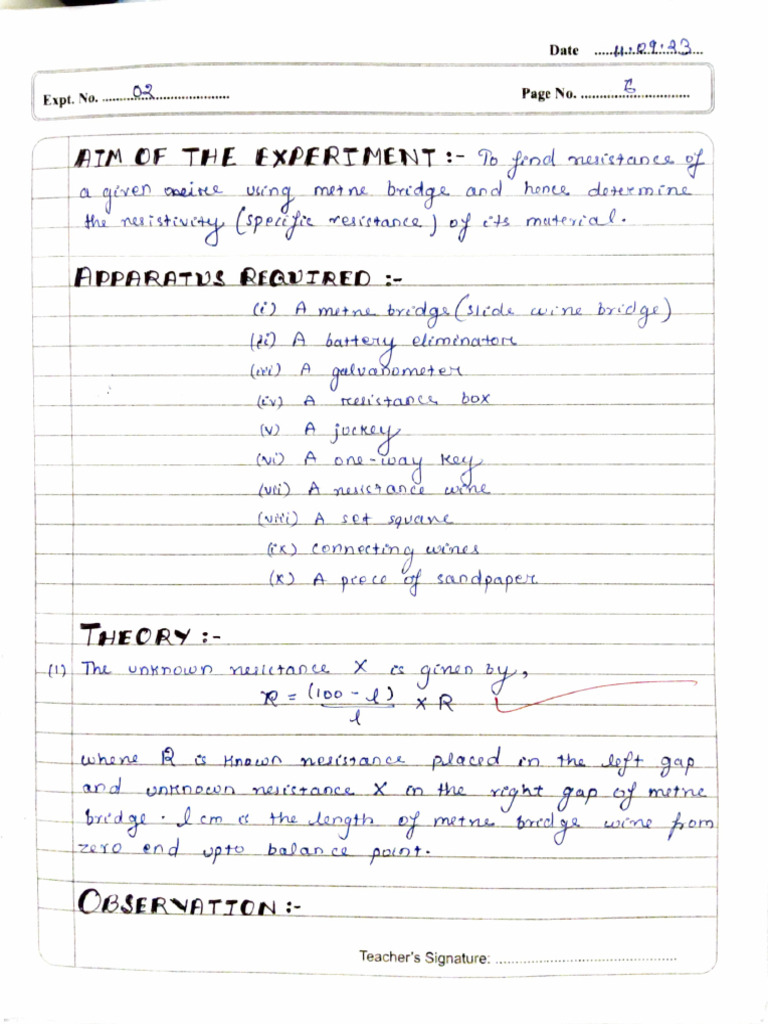 Date 11.09.23
Expt. No. 02 Page No. 6
AIM OF THE EXPERIMENT :- To find resistance of
a given using metre bridge and hence determine
the resistivity (specific resistance) of its material.
APPARATUS REQUIRED :-
(i) A metre bridge (slide wire bridge)
(ii) A battery eliminator
(iii) A galvanometer
(iv) A resistance box
(v) A jockey
(vi) A one-way key
(vii) A resistance wire
(viii) A set square
(ix) connecting wires
(x) A piece of sandpaper
THEORY :-
(1) The unknown resistance X is given by,
X = (100 - l) / l × R
where R is known resistance placed in the left gap
and unknown resistance X in the right gap of metre
bridge. l cm is the length of metre bridge wire from
zero end upto balance point.
OBSERVATION :-
Teacher's Signature: